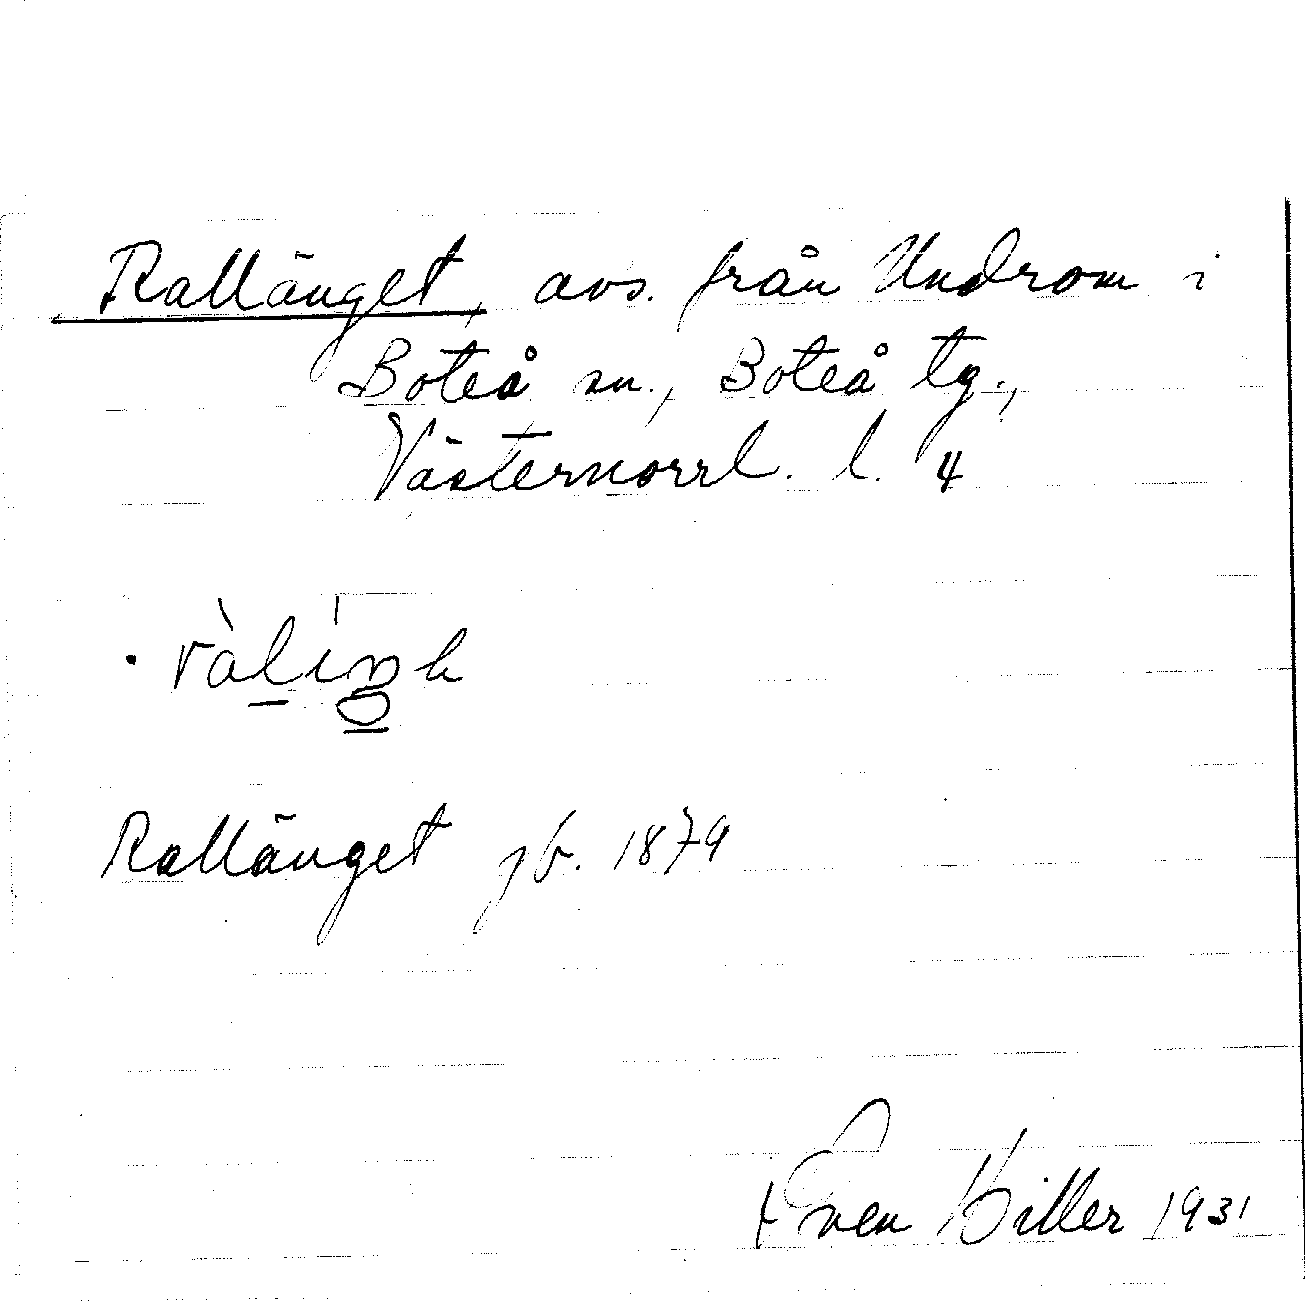 Rallänget, avs. från Undrom i
Boteå sn., Boteå tg.,
Västernorrl. l. 4
Rallänget jb. 1879
Sven Hiller 1931